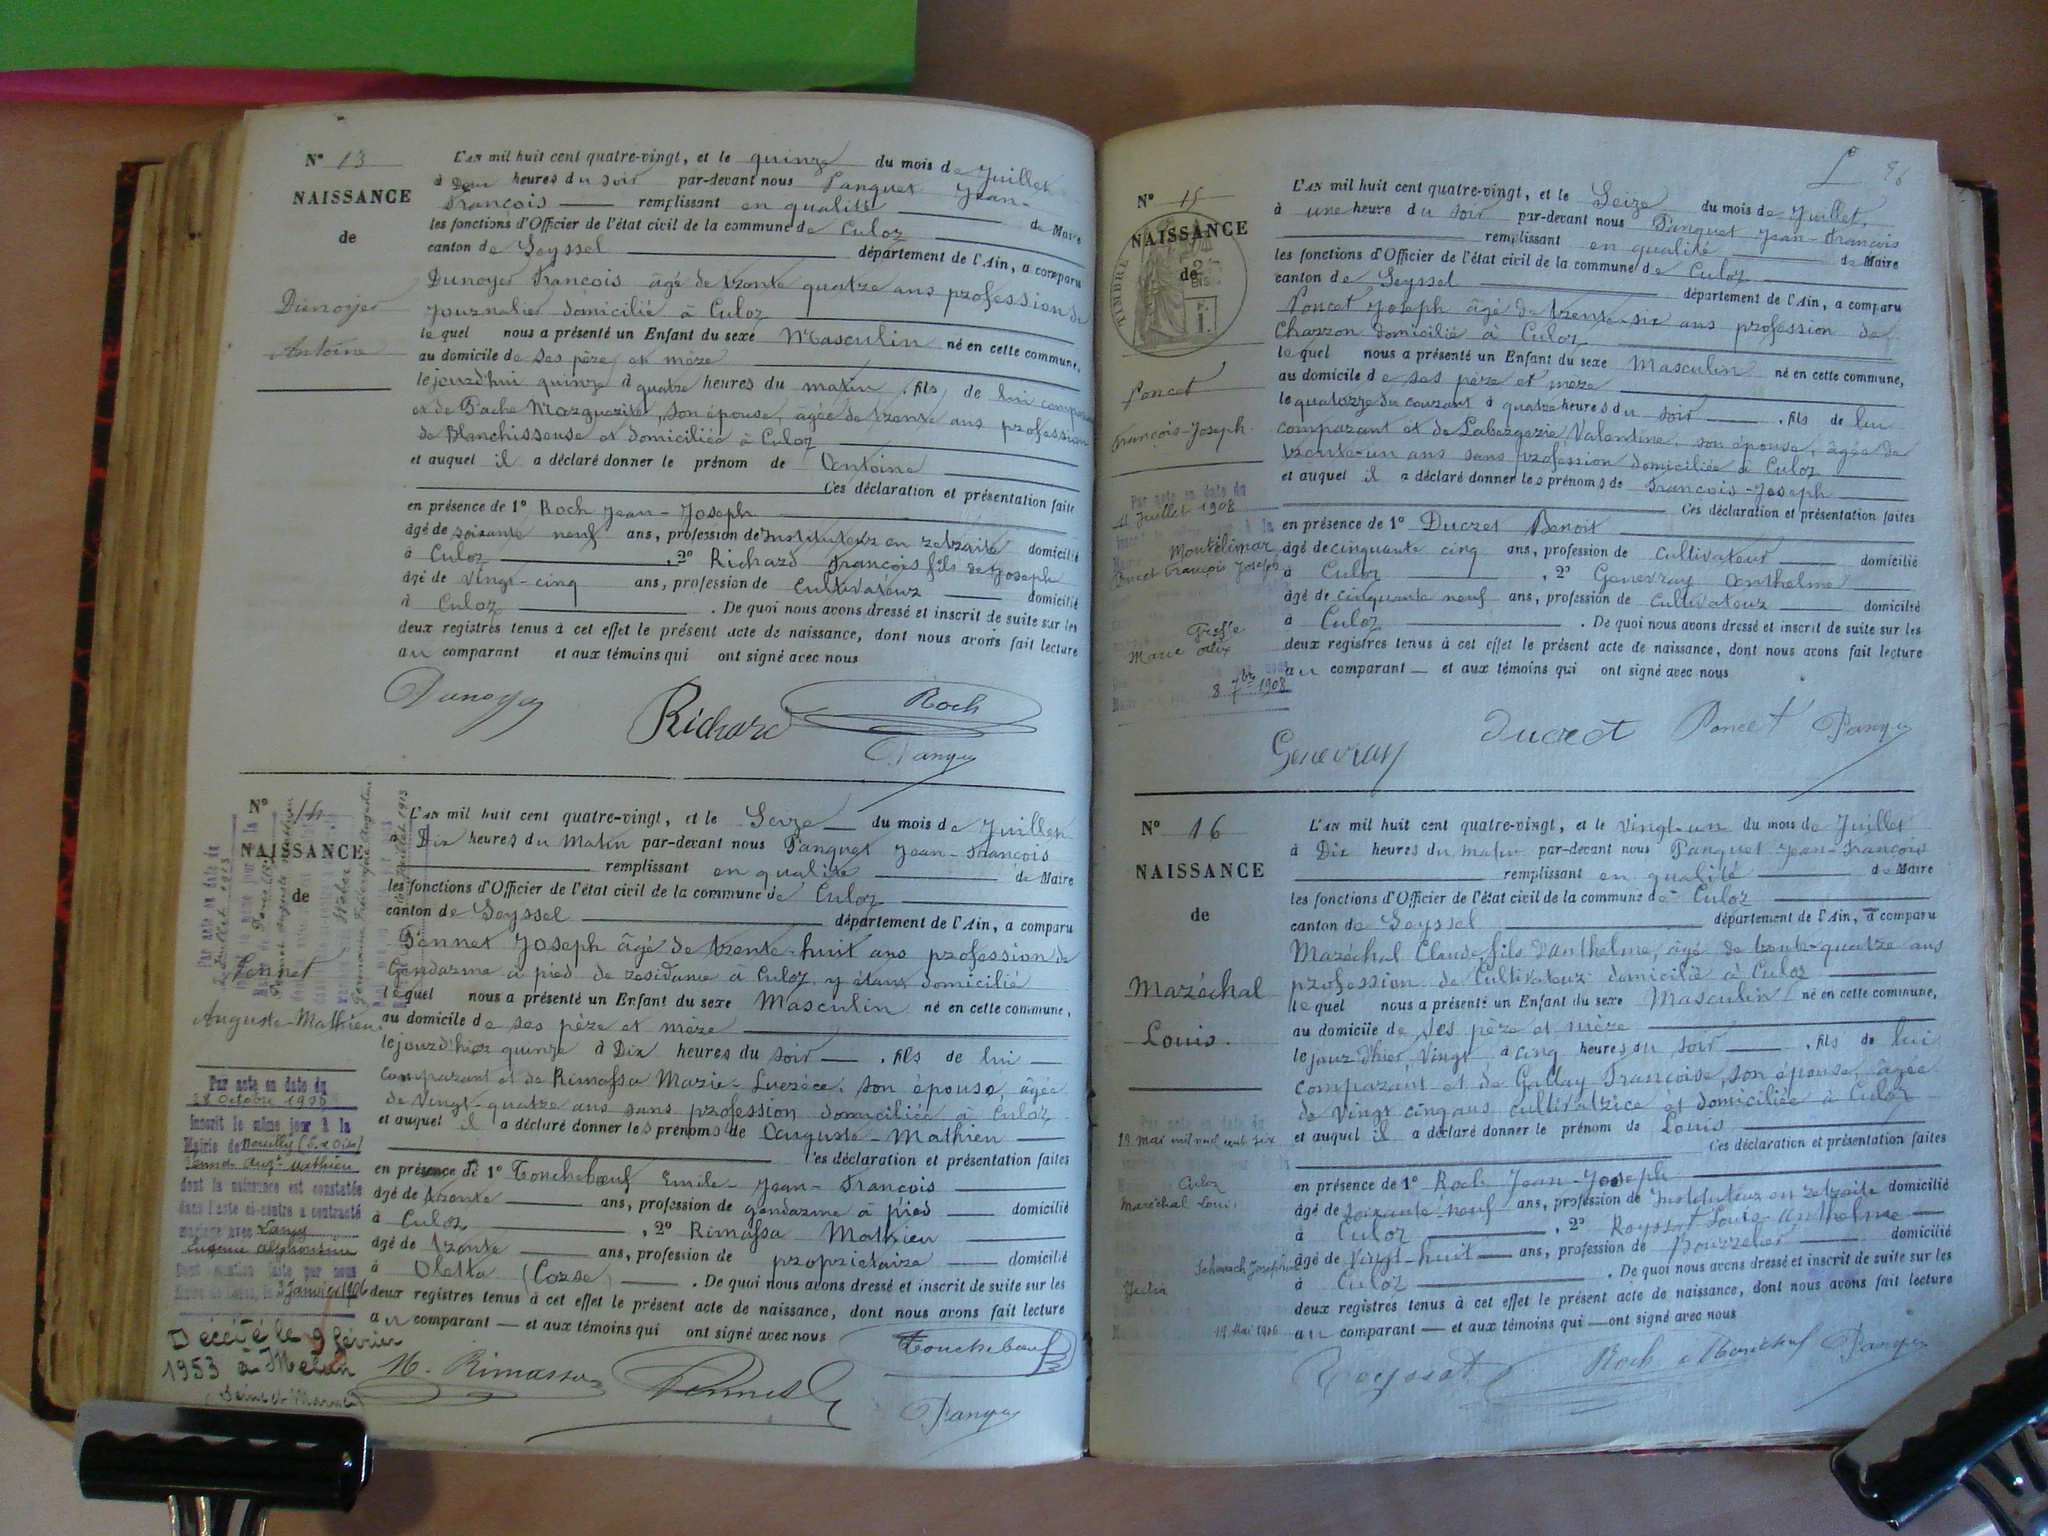 N° 13
NAISSANCE
de
Dunoyer
Antoine
L'AN mil huit cent quatre-vingt, et le quinze du mois de Juillet
à Deux heures du soir par-devant nous Panguet Jean-
François remplissant en qualité de Maire
les fonctions d'Officier de l'état civil de la commune de Culoz
canton de Seyssel département de l'Ain, a comparu
Dunoyer François âgé de trente quatre ans profession de
Journalier domicilié à Culoz
lequel nous a présenté un Enfant du sexe Masculin né en cette commune,
au domicile de ses père et mère
le jourd'hui quinze à quatre heures du matin, fils de lui comparant
et de Pache Marguerite, son épouse, âgée de trente ans profession
de Blanchisseuse et domiciliée à Culoz
et auquel il a déclaré donner le prénom de Antoine
Ces déclaration et présentation faite
en présence de 1° Roch Jean-Joseph
âgé de soixante neuf ans, profession de Instituteur en retraite domicilié
à Culoz, 2° Richard François fils de Joseph
âgé de vingt-cinq ans, profession de cultivateur domicilié
à Culoz. De quoi nous avons dressé et inscrit de suite sur les
deux registres tenus à cet effet le présent acte de naissance, dont nous avons fait lecture
au comparant et aux témoins qui ont signé avec nous
Dunoyer Richard Roch
Panguet
N° 14
NAISSANCE
de
Pennet
Auguste-Mathieu
Par acte en date du
28 Octobre 1905
inscrit le même jour à la
Mairie de Neuilly (S. et Oise)
Pennet Augte Mathieu
dont la naissance est constatée
dans l'acte ci-contre a contracté
mariage avec
Eugénie Alphonsine
Dont mention faite par nous
3 Janvier 1906
Décédé le 9 février
1953 à Melun
(Seine et Marne)
L'AN mil huit cent quatre-vingt, et le Seize du mois de Juillet
à Dix heures du Matin par-devant nous Panguet Jean-François
remplissant en qualité de Maire
les fonctions d'Officier de l'état civil de la commune de Culoz
canton de Seyssel département de l'Ain, a comparu
Pennet Joseph âgé de trente-huit ans profession de
Gendarme à pied de residance à Culoz y étant domicilié
lequel nous a présenté un Enfant du sexe Masculin né en cette commune,
au domicile de ses père et mère
le jourd'hier quinze à Dix heures du soir, fils de lui
comparant et de Rimassa Marie-Lucrèce, son épouse, âgée
de vingt-quatre ans sans profession domiciliée à Culoz
et auquel il a déclaré donner les prénoms de Auguste-Mathieu
Ces déclaration et présentation faites
en présence de 1° Toucheboeuf Emile-Jean-François
âgé de trente ans, profession de gendarme à pied domicilié
à Culoz, 2° Rimassa Mathieu
âgé de trente ans, profession de propriétaire domicilié
à Oletta (Corse). De quoi nous avons dressé et inscrit de suite sur les
deux registres tenus à cet effet le présent acte de naissance, dont nous avons fait lecture
au comparant et aux témoins qui ont signé avec nous
Toucheboeuf
M. Rimassa Pennet
Panguet
96
N° 15
NAISSANCE
de
TIMBRE
Poncet
François-Joseph
Par acte en date du
11 Juillet 1908
Montélimar
Poncet François Joseph
Marie Alix
8 7bre 1908
L'AN mil huit cent quatre-vingt, et le Seize du mois de Juillet,
à une heure du soir par-devant nous Panguet Jean-François
remplissant en qualité de Maire
les fonctions d'Officier de l'état civil de la commune de Culoz
canton de Seyssel département de l'Ain, a comparu
Poncet Joseph âgé de trente-six ans profession de
Charron domicilié à Culoz
lequel nous a présenté un Enfant du sexe Masculin né en cette commune,
au domicile de ses père et mère
le quatorze du courant à quatre heures du soir, fils de lui
comparant et de Labergerie Valentine, son épouse, âgée de
trente-un ans sans profession domiciliée à Culoz
et auquel il a déclaré donner les prénoms de François-Joseph
Ces déclaration et présentation faites
en présence de 1° Ducret Benoit
âgé de cinquante cinq ans, profession de cultivateur domicilié
à Culoz, 2° Genevray Anthelme
âgé de cinquante neuf ans, profession de cultivateur domicilié
à Culoz. De quoi nous avons dressé et inscrit de suite sur les
deux registres tenus à cet effet le présent acte de naissance, dont nous avons fait lecture
au comparant et aux témoins qui ont signé avec nous
Genevray Ducret Poncet Panguet
N° 16
NAISSANCE
de
Maréchal
Louis.
12 mai mil neuf cent six
Culoz
Maréchal Louis
Joséphine
Julia
19 Mai 1906
L'AN mil huit cent quatre-vingt, et le vingt-un du mois de Juillet
à Dix heures du matin par-devant nous Panguet Jean-François
remplissant en qualité de Maire
les fonctions d'Officier de l'état civil de la commune de Culoz
canton de Seyssel département de l'Ain, a comparu
Maréchal Claude, fils d'Anthelme, âgé de trente-quatre ans
profession de Cultivateur domicilié à Culoz
lequel nous a présenté un Enfant du sexe Masculin né en cette commune,
au domicile de ses père et mère
le jour d'hier vingt à cinq heures du soir, fils de lui
comparant et de Gallay Françoise, son épouse, âgée
de vingt cinq ans cultivatrice et domiciliée à Culoz
et auquel il a déclaré donner le prénom de Louis
Ces déclaration et présentation faites
en présence de 1° Roch Jean-Joseph
âgé de soixante neuf ans, profession de Instituteur en retraite domicilié
à Culoz, 2° Reyssat Louis-Anthelme
âgé de vingt-huit ans, profession de Bourrelier domicilié
à Culoz. De quoi nous avons dressé et inscrit de suite sur les
deux registres tenus à cet effet le présent acte de naissance, dont nous avons fait lecture
au comparant et aux témoins qui ont signé avec nous
Reyssat Roch Maréchal Panguet